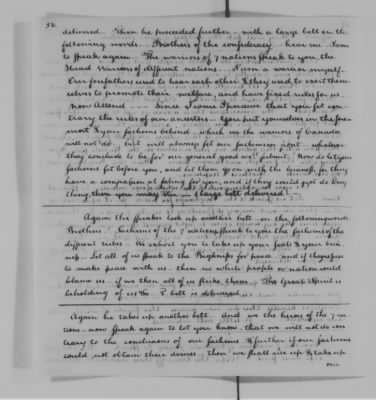 52.
delivered. Then he proceeded further - with a large belt on the
following words. Brothers of the confederacy - hear me - I am
to speak again. The warriors of 7 nations speak to you, the
Head Warriors of different nations. I am a warrior myself.
Our forefathers used to hear each other & they used to exert them
selves to promote their welfare, and have fixed rules for us.
Now Attend --- Since I came I perceive that you set con
trary the rules of our ancestors. You put yourselves in the fore
most & your sachems behind, which we the warriors of Canada
will not do. but will always let our sachems front. whatever
they conclude to be for our general good we submit. Now do let your
sachems set before you, and let them go on with the business, as they
have a compassion & feeling for you, and if they could not do any
thing, then you may rise — large belt delivered.
Again the speaker took up another belt - on the following words
Brothers. Sachems of the 7 nations, speak to you the sachems of the
different tribes. We exhort you to take up your seats & your busi
ness. Let all of us speak to the Bigknifes for peace. and if they refuse
to make peace with us - then no white people or nation could
blame us. if we then all of us strike them. The Great Spirit is
beholding of us &c. 3d belt is delivered.
Again he takes up another belt. And we the heroes of the 7 na
tions - now speak again to let you know, that we will not do con
trary to the conclusions of our sachems. & further if our sachems
could not obtain their desires, then we shall rise up & take up
our